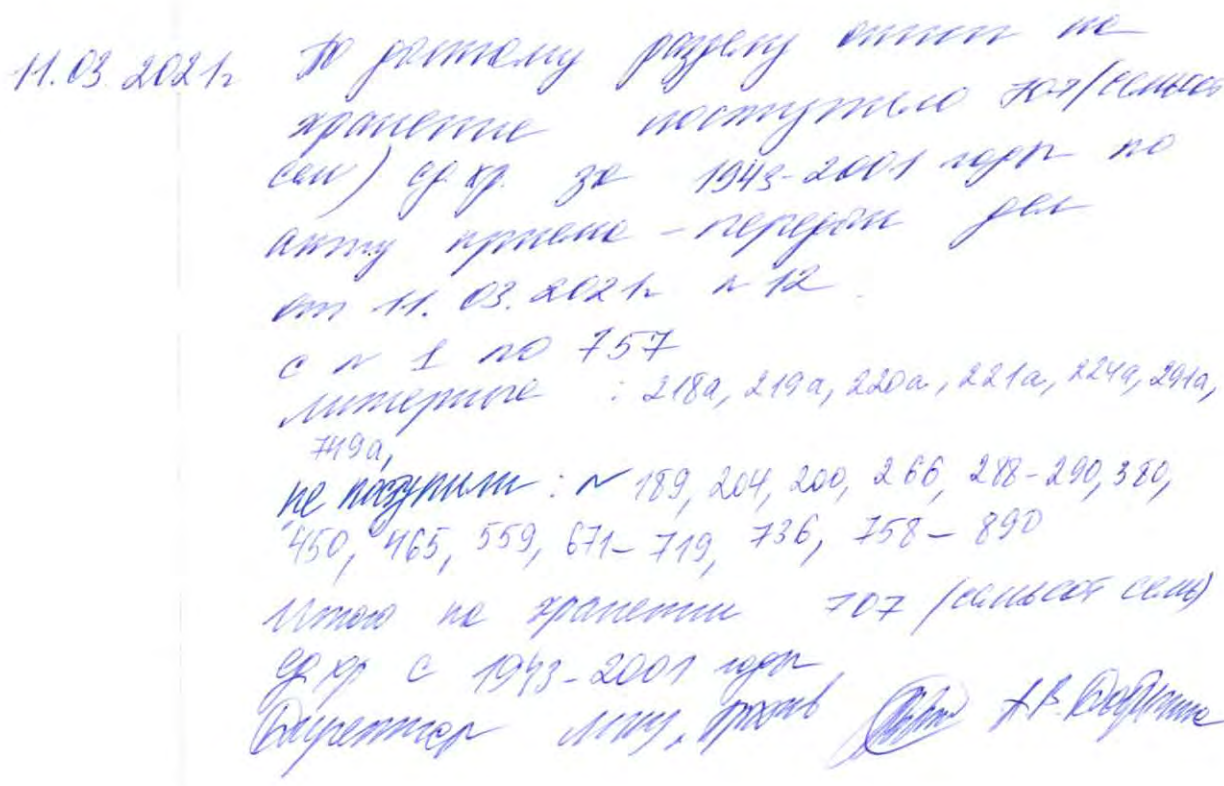 11.03.2021г По данному разделу описи на
хранение поступило 707 (семьсот
семь) ед.хр. за 1943-2001 годы по
акту приема-передачи дел
от 11.03.2021г № 12.
с № 1 по 757
литерные : 218а, 219а, 220а, 221а, 224а, 291а,
749а,
не поступили : № 189, 204, 200, 266, 288-290, 380,
450, 465, 559, 671-719, 736, 758-890
Итого на хранении 707 (семьсот семь)
ед.хр с 1943-2001 годы
Директор МКУ "Архив